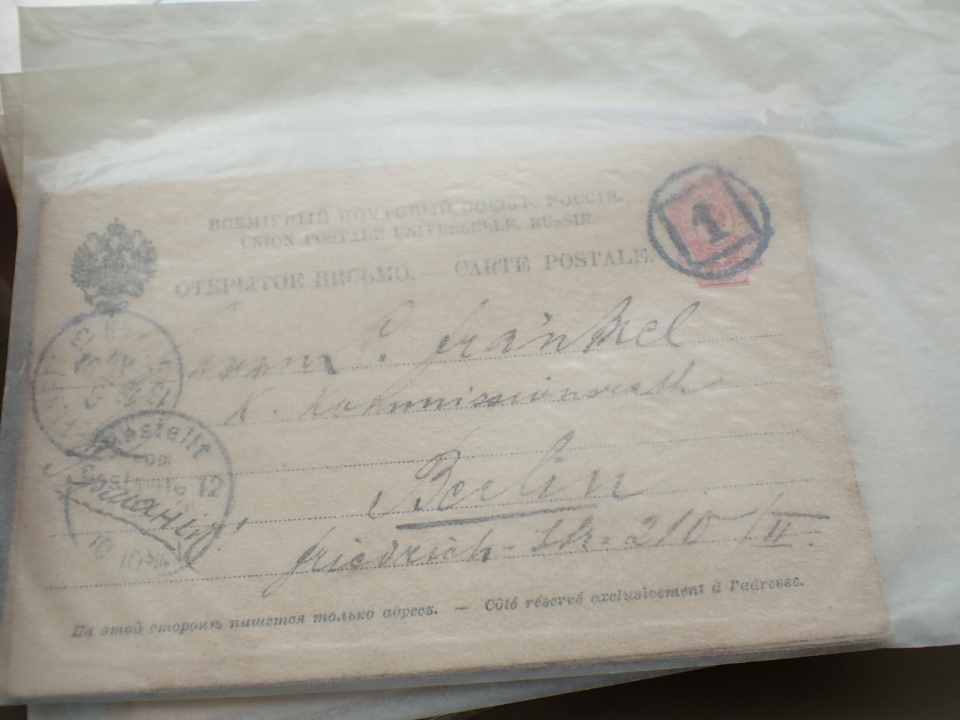 ВСЕМІРНЫЙ ПОЧТОВЫЙ СОЮЗЪ. РОССІЯ.
UNION POSTALE UNIVERSELLE. RUSSIE.
ОТКРЫТОЕ ПИСЬМО. CARTE POSTALE.
1
Fränkel
K. Kommissionsrath
Berlin
Friedrich-Str. 210 /II.
Bestellt
vom
Postamte 12
На этой сторонѣ пишется только адресъ. — Côté réservé exclusivement à l'adresse.